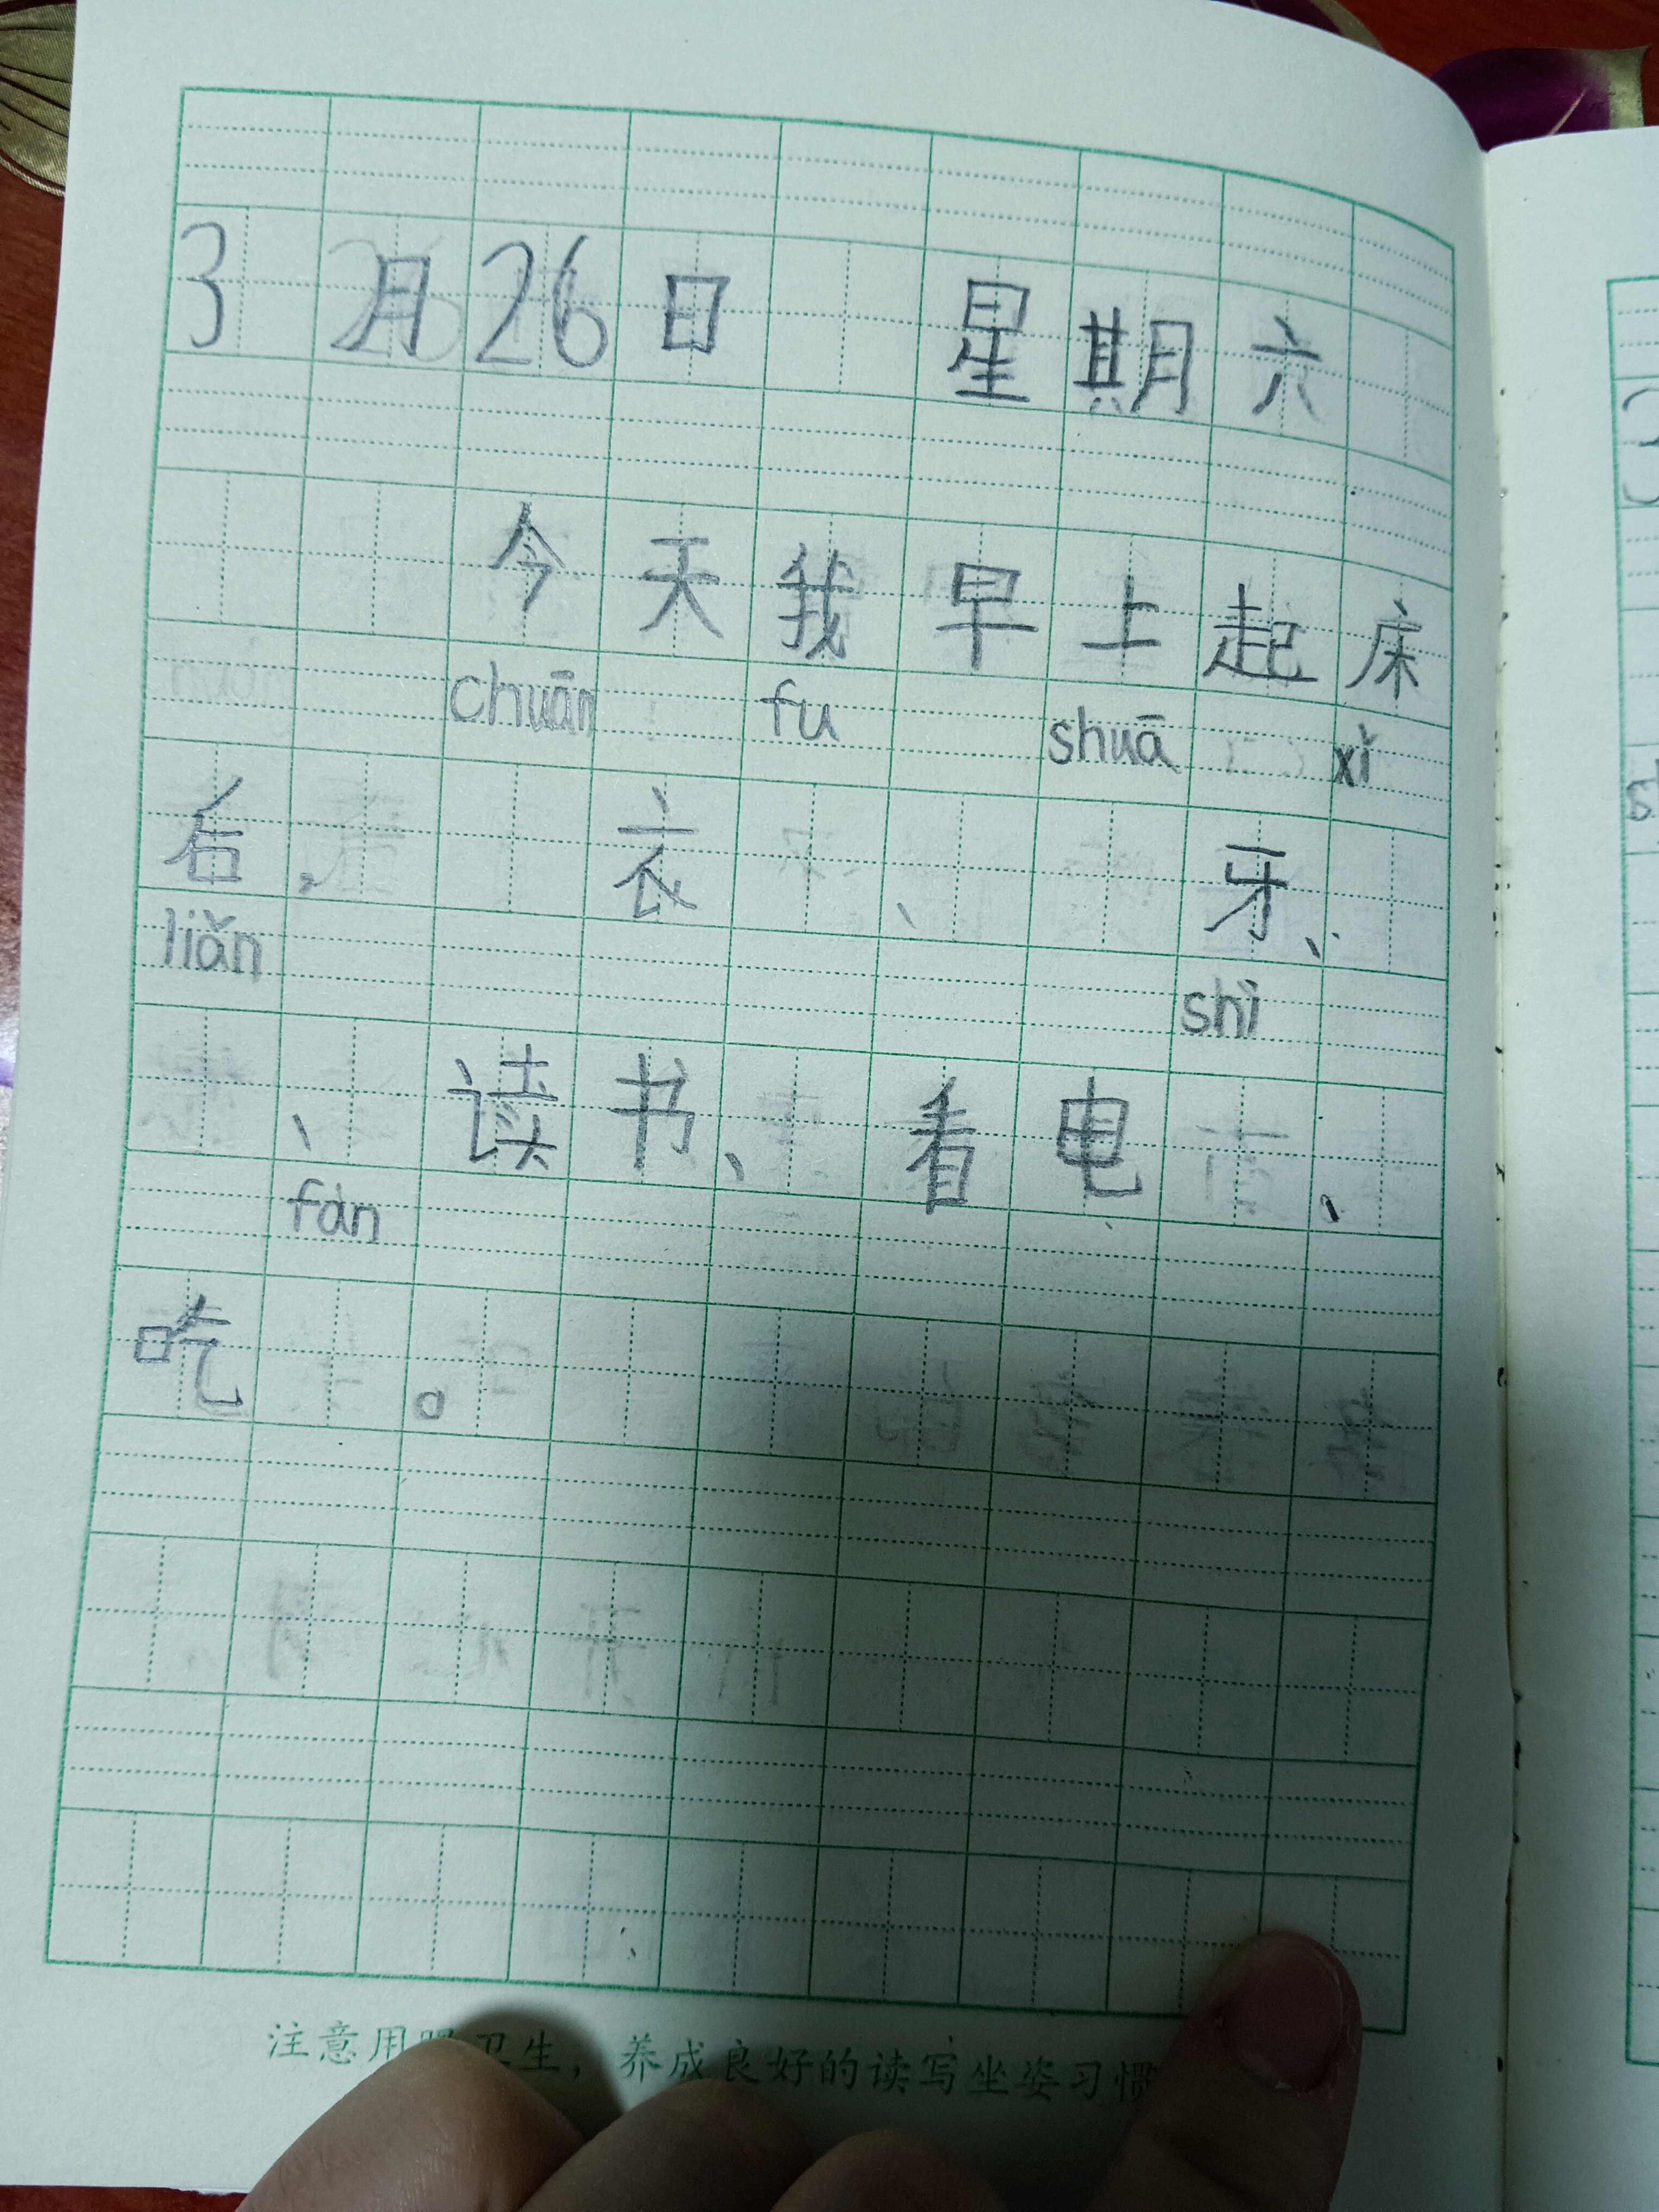 3月26日 星期六
今天我早上起床
chuān fu shuā xǐ
后，衣、牙、
liǎn shì
、读书、看电、
fàn
吃。
注意用眼卫生，养成良好的读写坐姿习惯